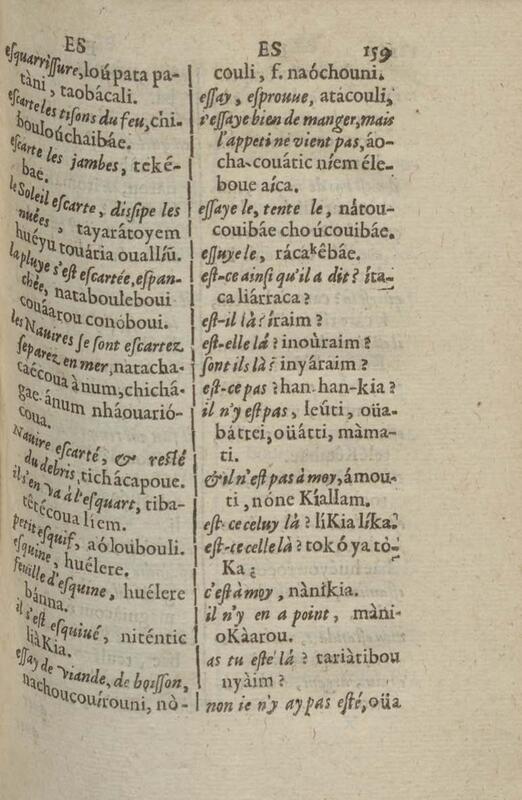 ES
eſquarriſſure, loúpata pa-
tàni, taobácali.
eſcarte les tiſons du feu, chi-
bouloúchaibáe.
eſcarte les jambes, teké-
bae.
le Soleil eſcarte, diſſipe les
nuées, tayarátoyem
huéyu touària oualliũ.
la pluye s'eſt eſcartée, eſpan-
chée, natabouleboui
couáarou conóboui.
les Nauires ſe ſont eſcartez
ſeparez en mer, natacha-
caécoua ànum, chichá-
gae ánum nháouarió-
coua.
Nauire eſcarté, & reſté
du debris, tichácapoue.
il s'en va à l'eſquart, tiba-
têtécoua liem.
petit eſquif, aóloubouli.
eſquine, huélere.
feuille d'eſquine, huélere
bánna.
il s'eſt eſquiué, niténtic
liàKia.
eſſay de viande, de boiſſon,
nachoucouírouni, nò-
ES 159
couli, f. naóchouni.
eſſay, eſprouue, atácouli,
i'eſſaye bien de manger, mais
l'appeti ne vient pas, áo-
cha-couátic níem éle-
boue aíca.
eſſaye le, tente le, nátou-
couibáe choúcouibáe.
eſſuye le, rácakêbáe.
eſt-ce ainſi qu'il a dit? íta-
ca liárraca?
eſt-il là? íraim?
eſt-elle lá? inoùraim?
ſont ils là? inyáraim?
eſt-ce pas? han han-kia?
il n'y eſt pas, leúti, oüa-
báttei, oüátti, màma-
ti.
& il n'eſt pas à moy, ámou-
ti, nóne Kíallam.
eſt-ce celuy là? líKia líka?
eſt-ce celle là? tokó ya tò-
Ka?
c'eſt à moy, nànikia.
il n'y en a point, màni-
oKàarou.
as tu eſté là? tariàtibou
nyàim?
non ie n'y ay pas eſté, oüa